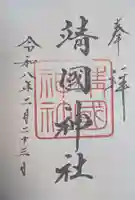 奉拝
靖國神社
靖国神社
令和八年二月二十三日